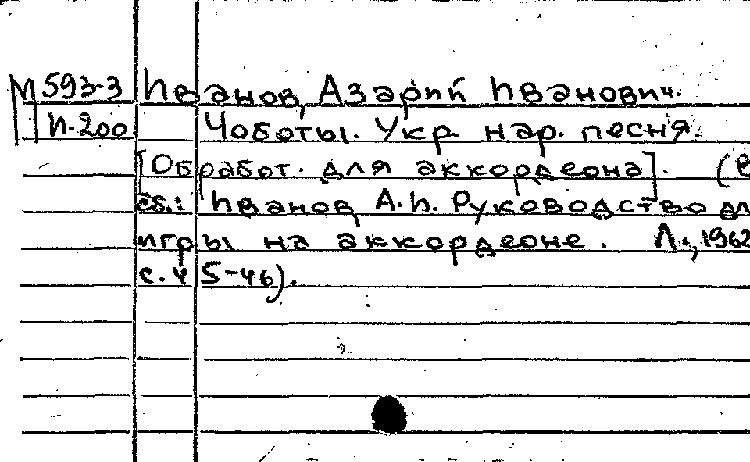 М 593-3 Иванов, Азарий Иванович.
И-200 Чоботы. Укр. нар. песня.
[Обработ. для аккордеона]. (В
сб.: Иванов А.И. Руководство дл
игры на аккордеоне. Л., 1962
с. 45-46).